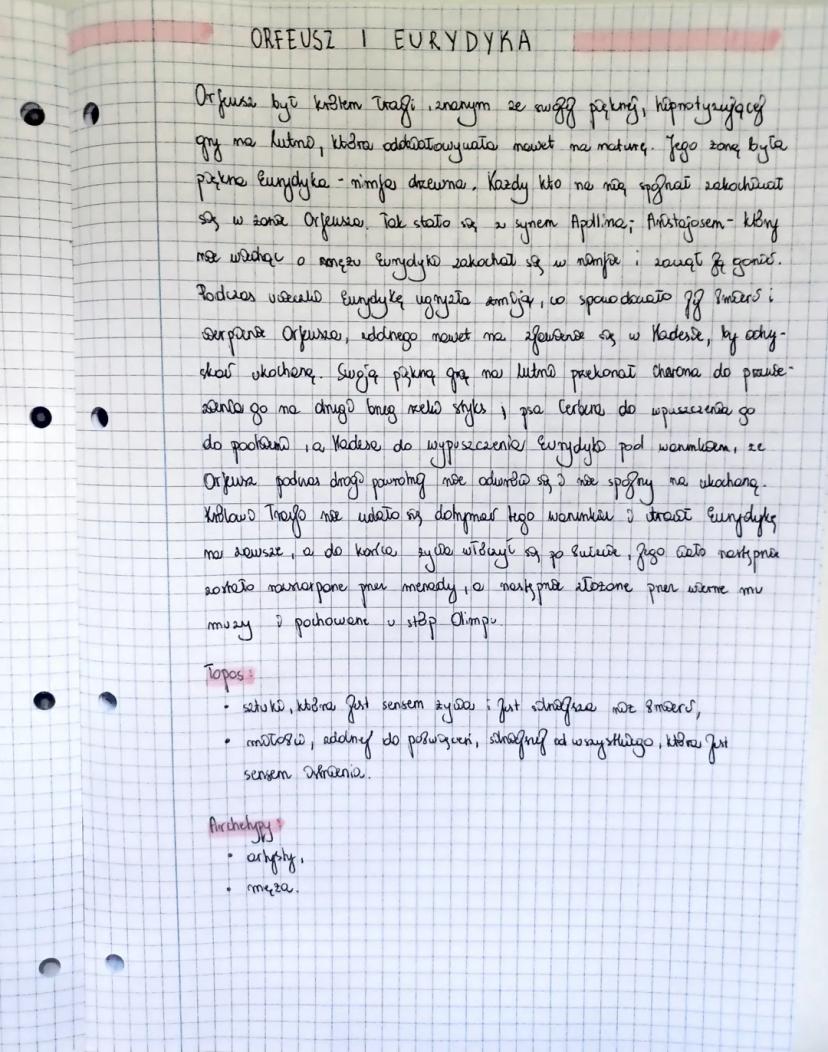 ORFEUSZ I EURYDYKA
Orfeusz był królem Tragi, znanym ze swojej pięknej, hipnotyzującej
gry na lutni, która oddziaływała nawet na naturę. Jego żoną była
piękna Eurydyka - nimfa drzewna. Każdy kto na nią spojrzał zakochiwał
się w żonie Orfeusza. Tak stało się z synem Apollina; Aristajosem - który
nie wiedząc o mężu Eurydyki zakochał się w nimfie i zaczął ją gonić.
Podczas ucieczki Eurydykę ugryzła żmija, co spowodowało jej śmierć i
cierpienie Orfeusza, zdolnego nawet na zjawienie się w Hadesie, by odzy-
skać ukochaną. Swoją piękną grą na lutni przekonał Charona do przewie-
zienia go na drugi brzeg rzeki Styks, psa Cerbera do wpuszczenia go
do podziemi, a Hadesa do wypuszczenia Eurydyki pod warunkiem, że
Orfeusz podczas drogi powrotnej nie odwróci się i nie spojrzy na ukochaną.
Królowi Tragii nie udało się dotrzymać tego warunku i stracił Eurydykę
na zawsze, a do końca życia włóczył się po świecie. Jego ciało następnie
zostało rozszarpane przez menady, a następnie złożone przez wierne mu
muzy i pochowane u stóp Olimpu.
Topos:
• sztuki, która jest sensem życia i jest silniejsza niż śmierć,
• miłości, zdolnej do poświęceń, silniejszej od wszystkiego, która jest
sensem istnienia.
Archetypy:
• artysty,
• męża.